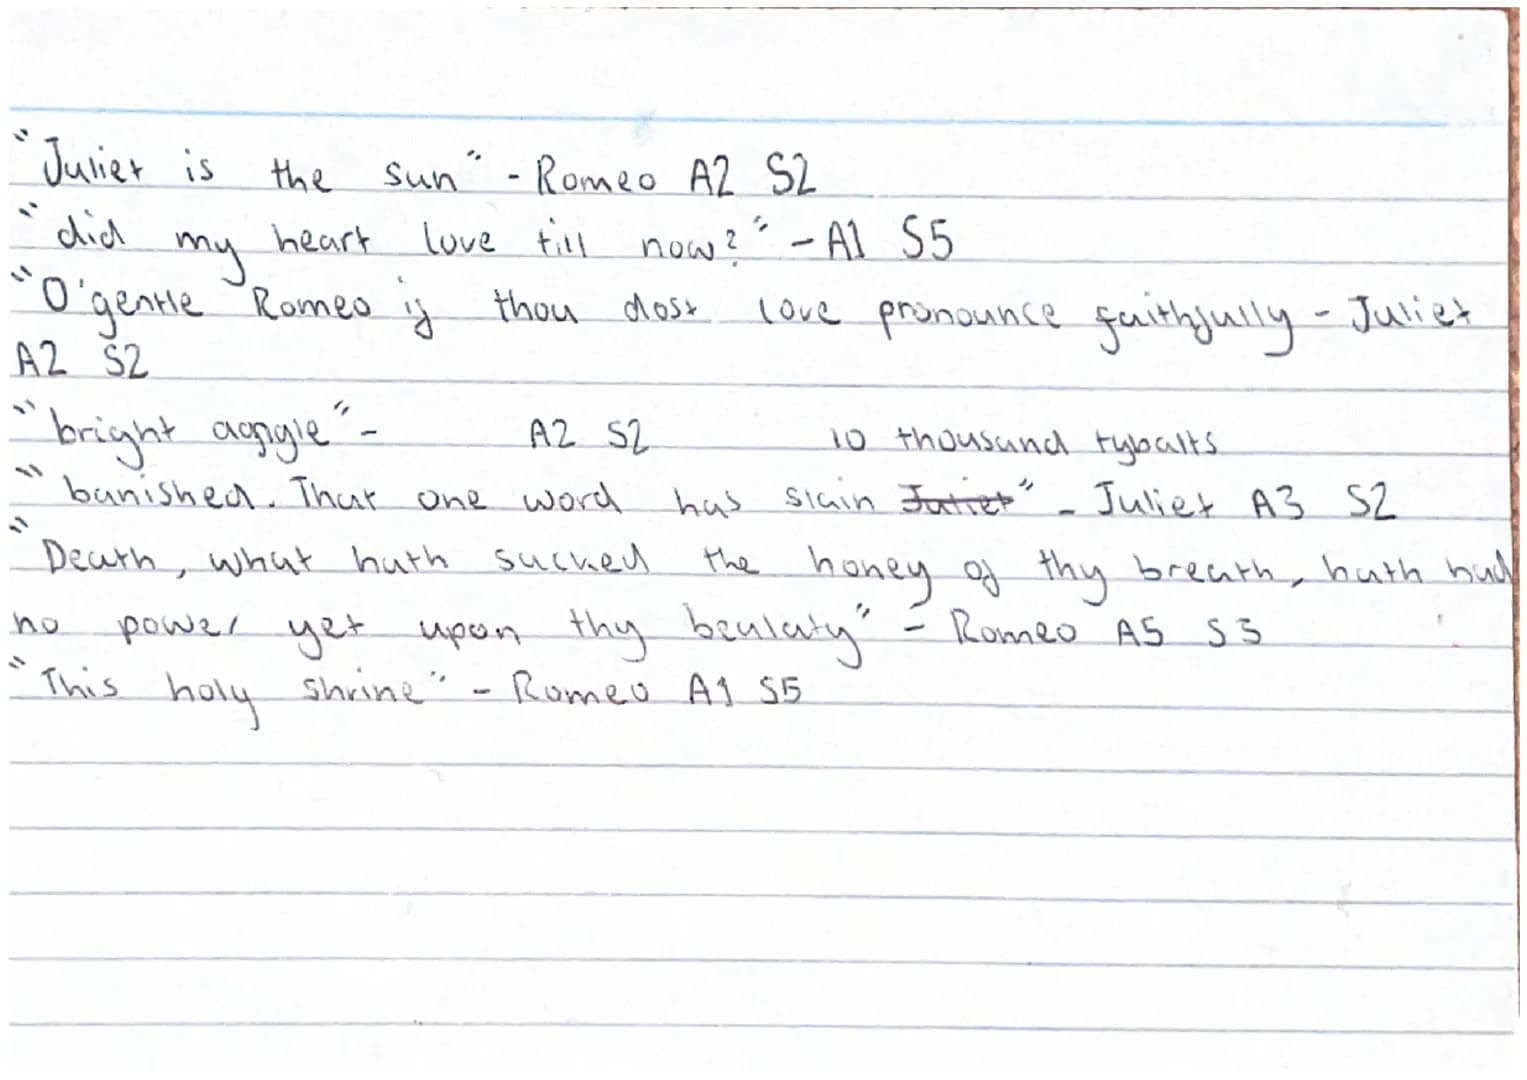 "Juliet is the sun" - Romeo A2 S2
"did my heart love till now?" - A1 S5
"O'gentle Romeo if thou dost love pronounce faithfully - Juliet
A2 S2
"bright agggle" - A2 S2 10 thousand tybalts
"banished. That one word has slain Juliet" - Juliet A3 S2
"Death, what hath sucked the honey of thy breath, hath had
no power yet upon thy beulaty" - Romeo A5 S3
"This holy shrine" - Romeo A1 S5